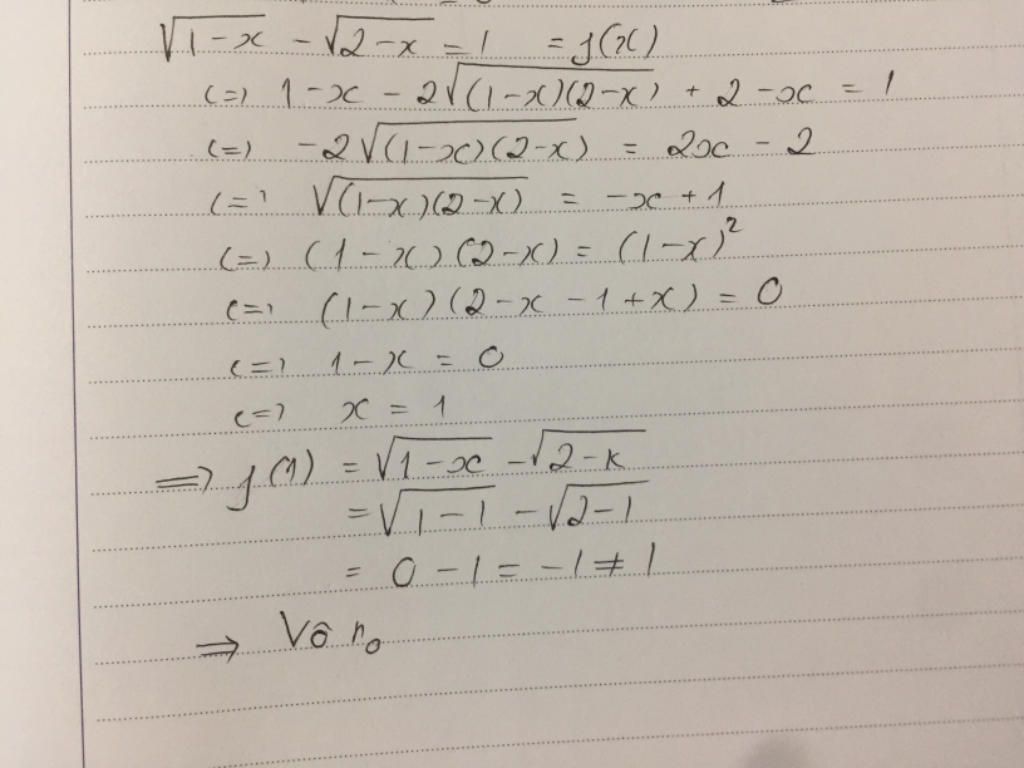 √(1-x) - √(2-x) = 1 = f(x)
<=> 1-x - 2√((1-x)(2-x)) + 2-x = 1
<=> -2√((1-x)(2-x)) = 2x - 2
<=> √((1-x)(2-x)) = -x + 1
<=> (1-x)(2-x) = (1-x)²
<=> (1-x)(2-x-1+x) = 0
<=> 1-x = 0
<=> x = 1
=> f(1) = √(1-x) - √(2-x)
= √(1-1) - √(2-1)
= 0 - 1 = -1 ≠ 1
=> Vô n₀